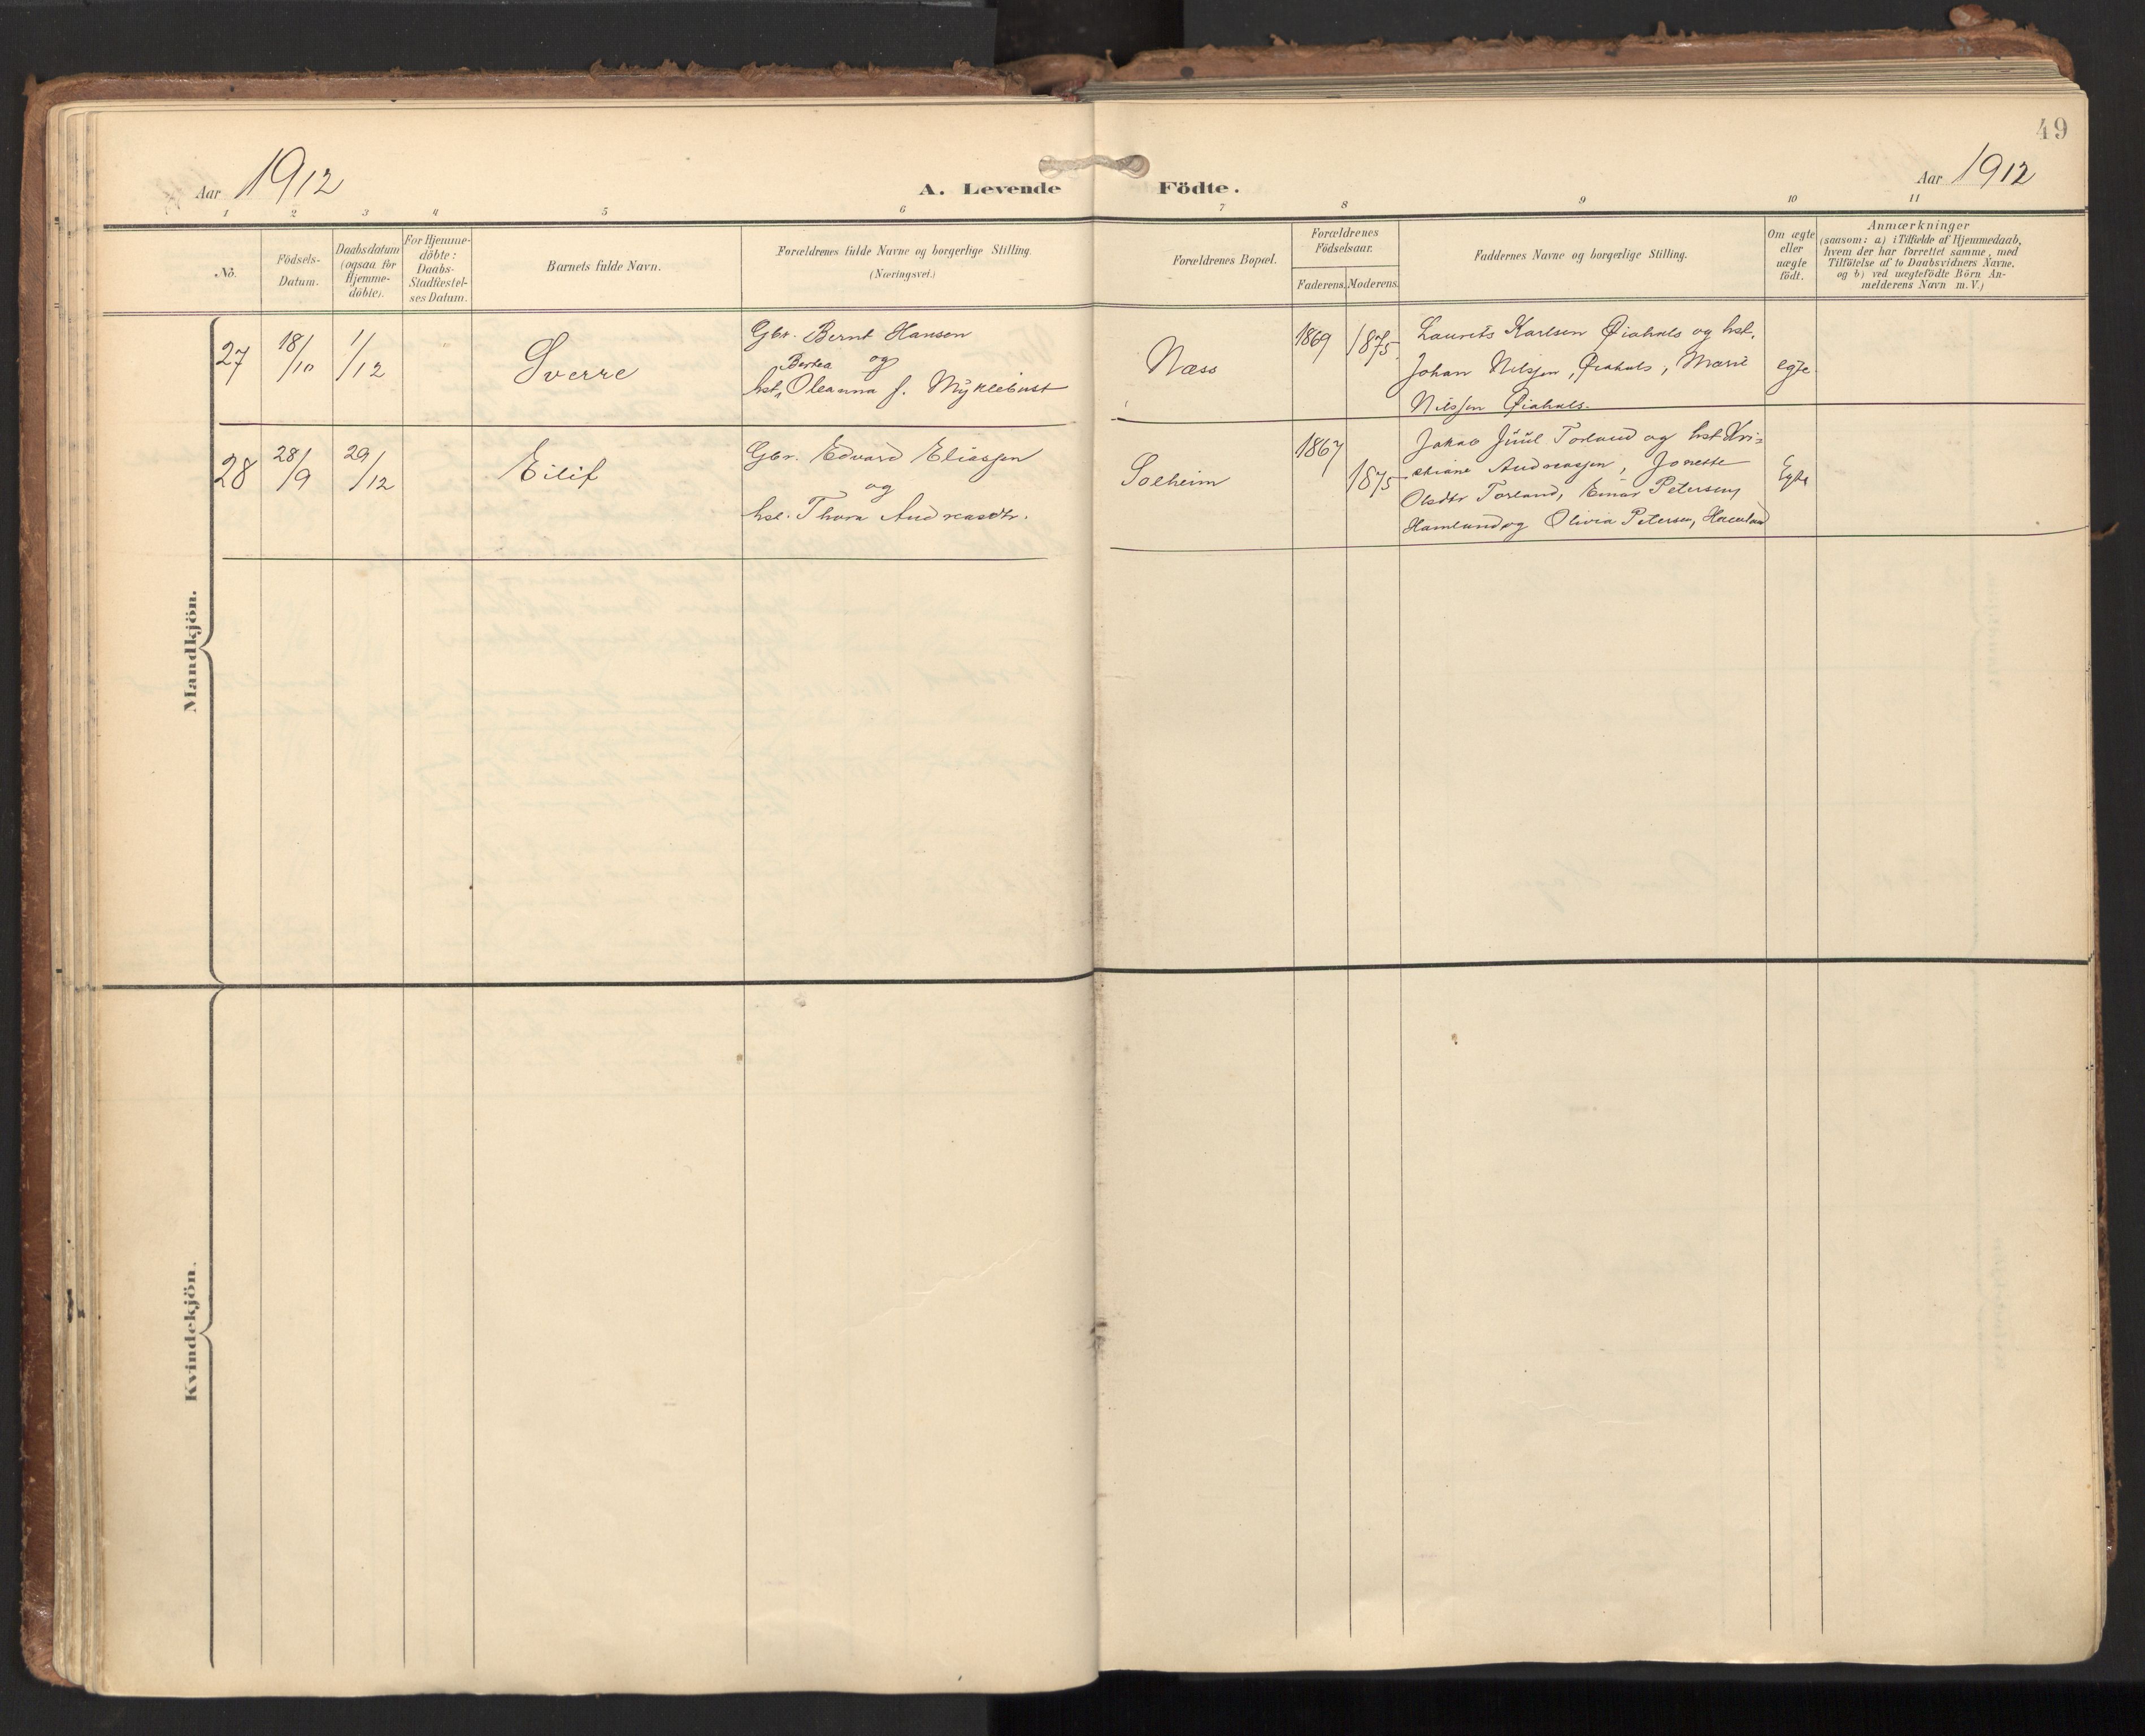 49
Aar 1912
A. Levende Födte.
Aar 1912
1 2 3 4 5 6 7 8 9 10 11
No.
Födsels-
Datum.
Daabsdatum
(ogsaa for
Hjemme-
döbte).
For Hjemme-
döbte:
Daabs-
Stadfæstel-
ses Datum.
Barnets fulde Navn.
Forældrenes fulde Navne og borgerlige Stilling.
(Næringsvei.)
Forældrenes Bopæl.
Forældrenes
Födselsaar.
Faderens. Moderens.
Faddernes Navne og borgerlige Stilling.
Om ægte
eller
uægte
födt.
Anmærkninger
(saasom: a) i Tilfælde af Hjemmedaab,
hvem der har forrettet samme, med
Tilföielse af to Daabsvidners Navne,
og b) ved uægtefödte Börn An-
melderens Navn m. V.)
Mandkjön.
27
18/10
1/12
Sverre
Gbr. Bernt Hansen
og
hst. Bertea Oleanna f. Myklebust
Næss
1869
1875
Laurits Karlsen og hst.
Johan Nilssen, Marie
Nilssen
egte
28
28/9
29/12
Eilif
Gbr. Edvard Eliassen
og
hst. Thora Andreasdtr.
Solheim
1867
1875
Jakob Juul Torland og hst Kri-
stiane Andreassen, Jonette
Olsdtr Torland, Einar Petersen,
Hamland og Olivia Petersen,
Egte
Kvindekjön.